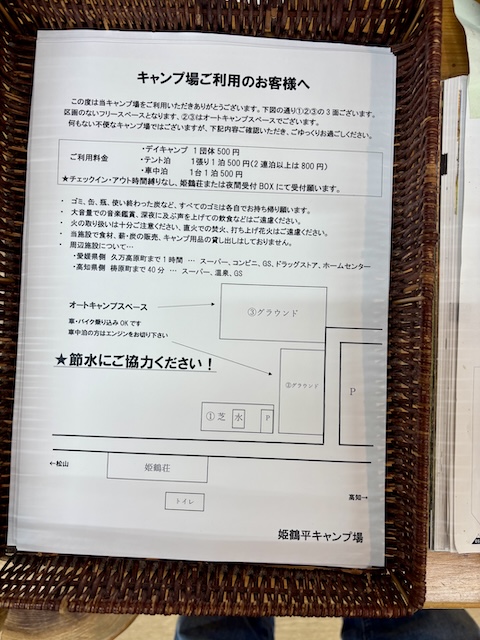 キャンプ場ご利用のお客様へ
この度は当キャンプ場をご利用いただきありがとうございます。下図の通り①②③の3面ございます。
区画のないフリースペースとなります、②③はオートキャンプスペースでございます。
何もない不便なキャンプ場ではございますが、下記内容ご確認いただき、ごゆっくりお過ごしください。
ご利用料金
・デイキャンプ 1団体500円
・テント泊 1張り1泊500円(2連泊以上は800円)
・車中泊 1台1泊500円
★チェックイン・アウト時間縛りなし、姫鶴荘または夜間受付BOXにて受付願います。
・ ゴミ、缶、瓶、使い終わった炭など、すべてのゴミは各自でお持ち帰り願います。
・ 大音量での音楽鑑賞、深夜に及ぶ声を上げての飲食などはご遠慮ください。
・ 火の取り扱いは十分ご注意ください、直火での焚火、打ち上げ花火はご遠慮ください。
・ 当施設で食材、薪・炭の販売、キャンプ用品の貸し出はしておりません。
・ 周辺施設について…
・愛媛県側 久万高原町まで1時間 … スーパー、コンビニ、GS、ドラッグストア、ホームセンター
・高知県側 梼原町まで40分 … スーパー、温泉、GS
オートキャンプスペース
③グラウンド
車・バイク乗り込みOKです
車中泊の方はエンジンをお切り下さい
★節水にご協力ください!
②グラウンド
P
①芝
水
P
←松山
姫鶴荘
高知→
トイレ
姫鶴平キャンプ場